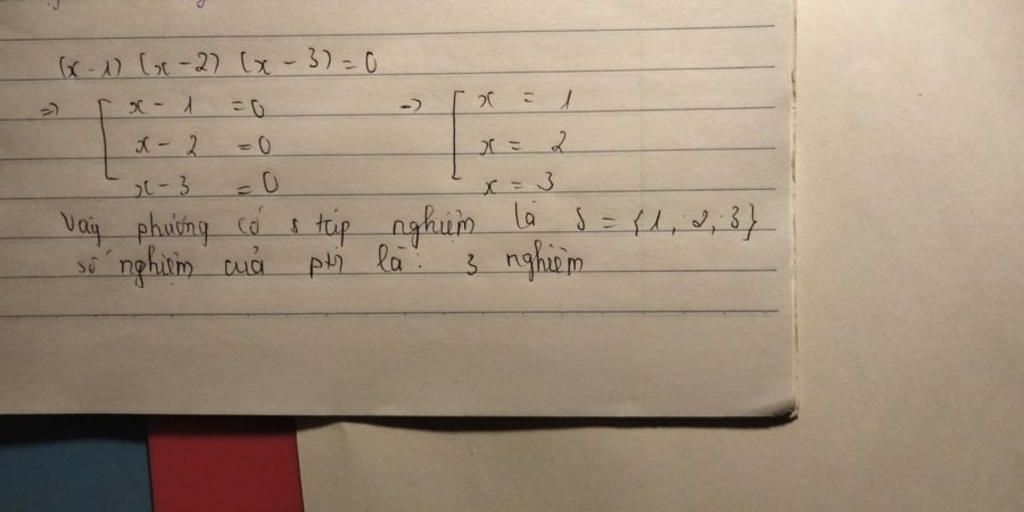 (x - 1) (x - 2) (x - 3) = 0
=> [ x - 1 = 0 => [ x = 1
x - 2 = 0 x = 2
x - 3 = 0 x = 3
Vậy phương có s tập nghiệm là S = {1; 2; 3}
số nghiệm của pt là: 3 nghiệm